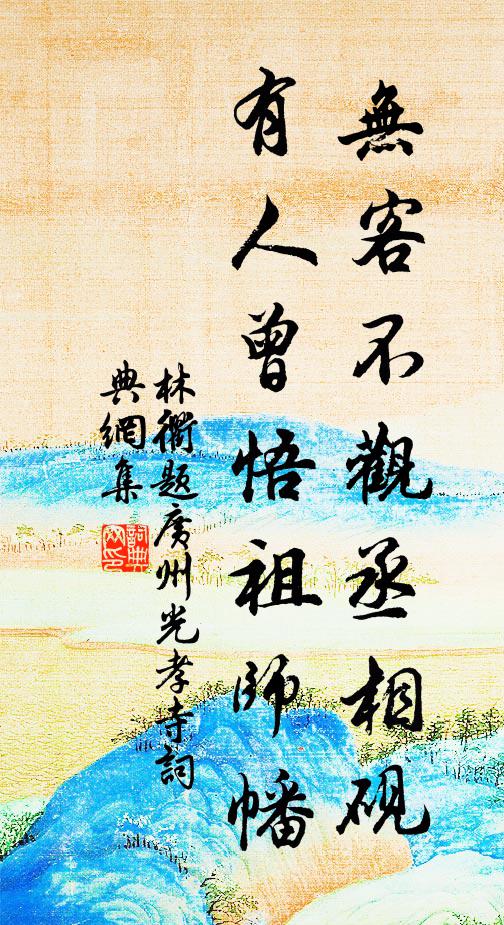 無客不觀丞相硯
有人曾悟祖師幡
林衢題廣州光孝寺詞
典網集
詞典網印